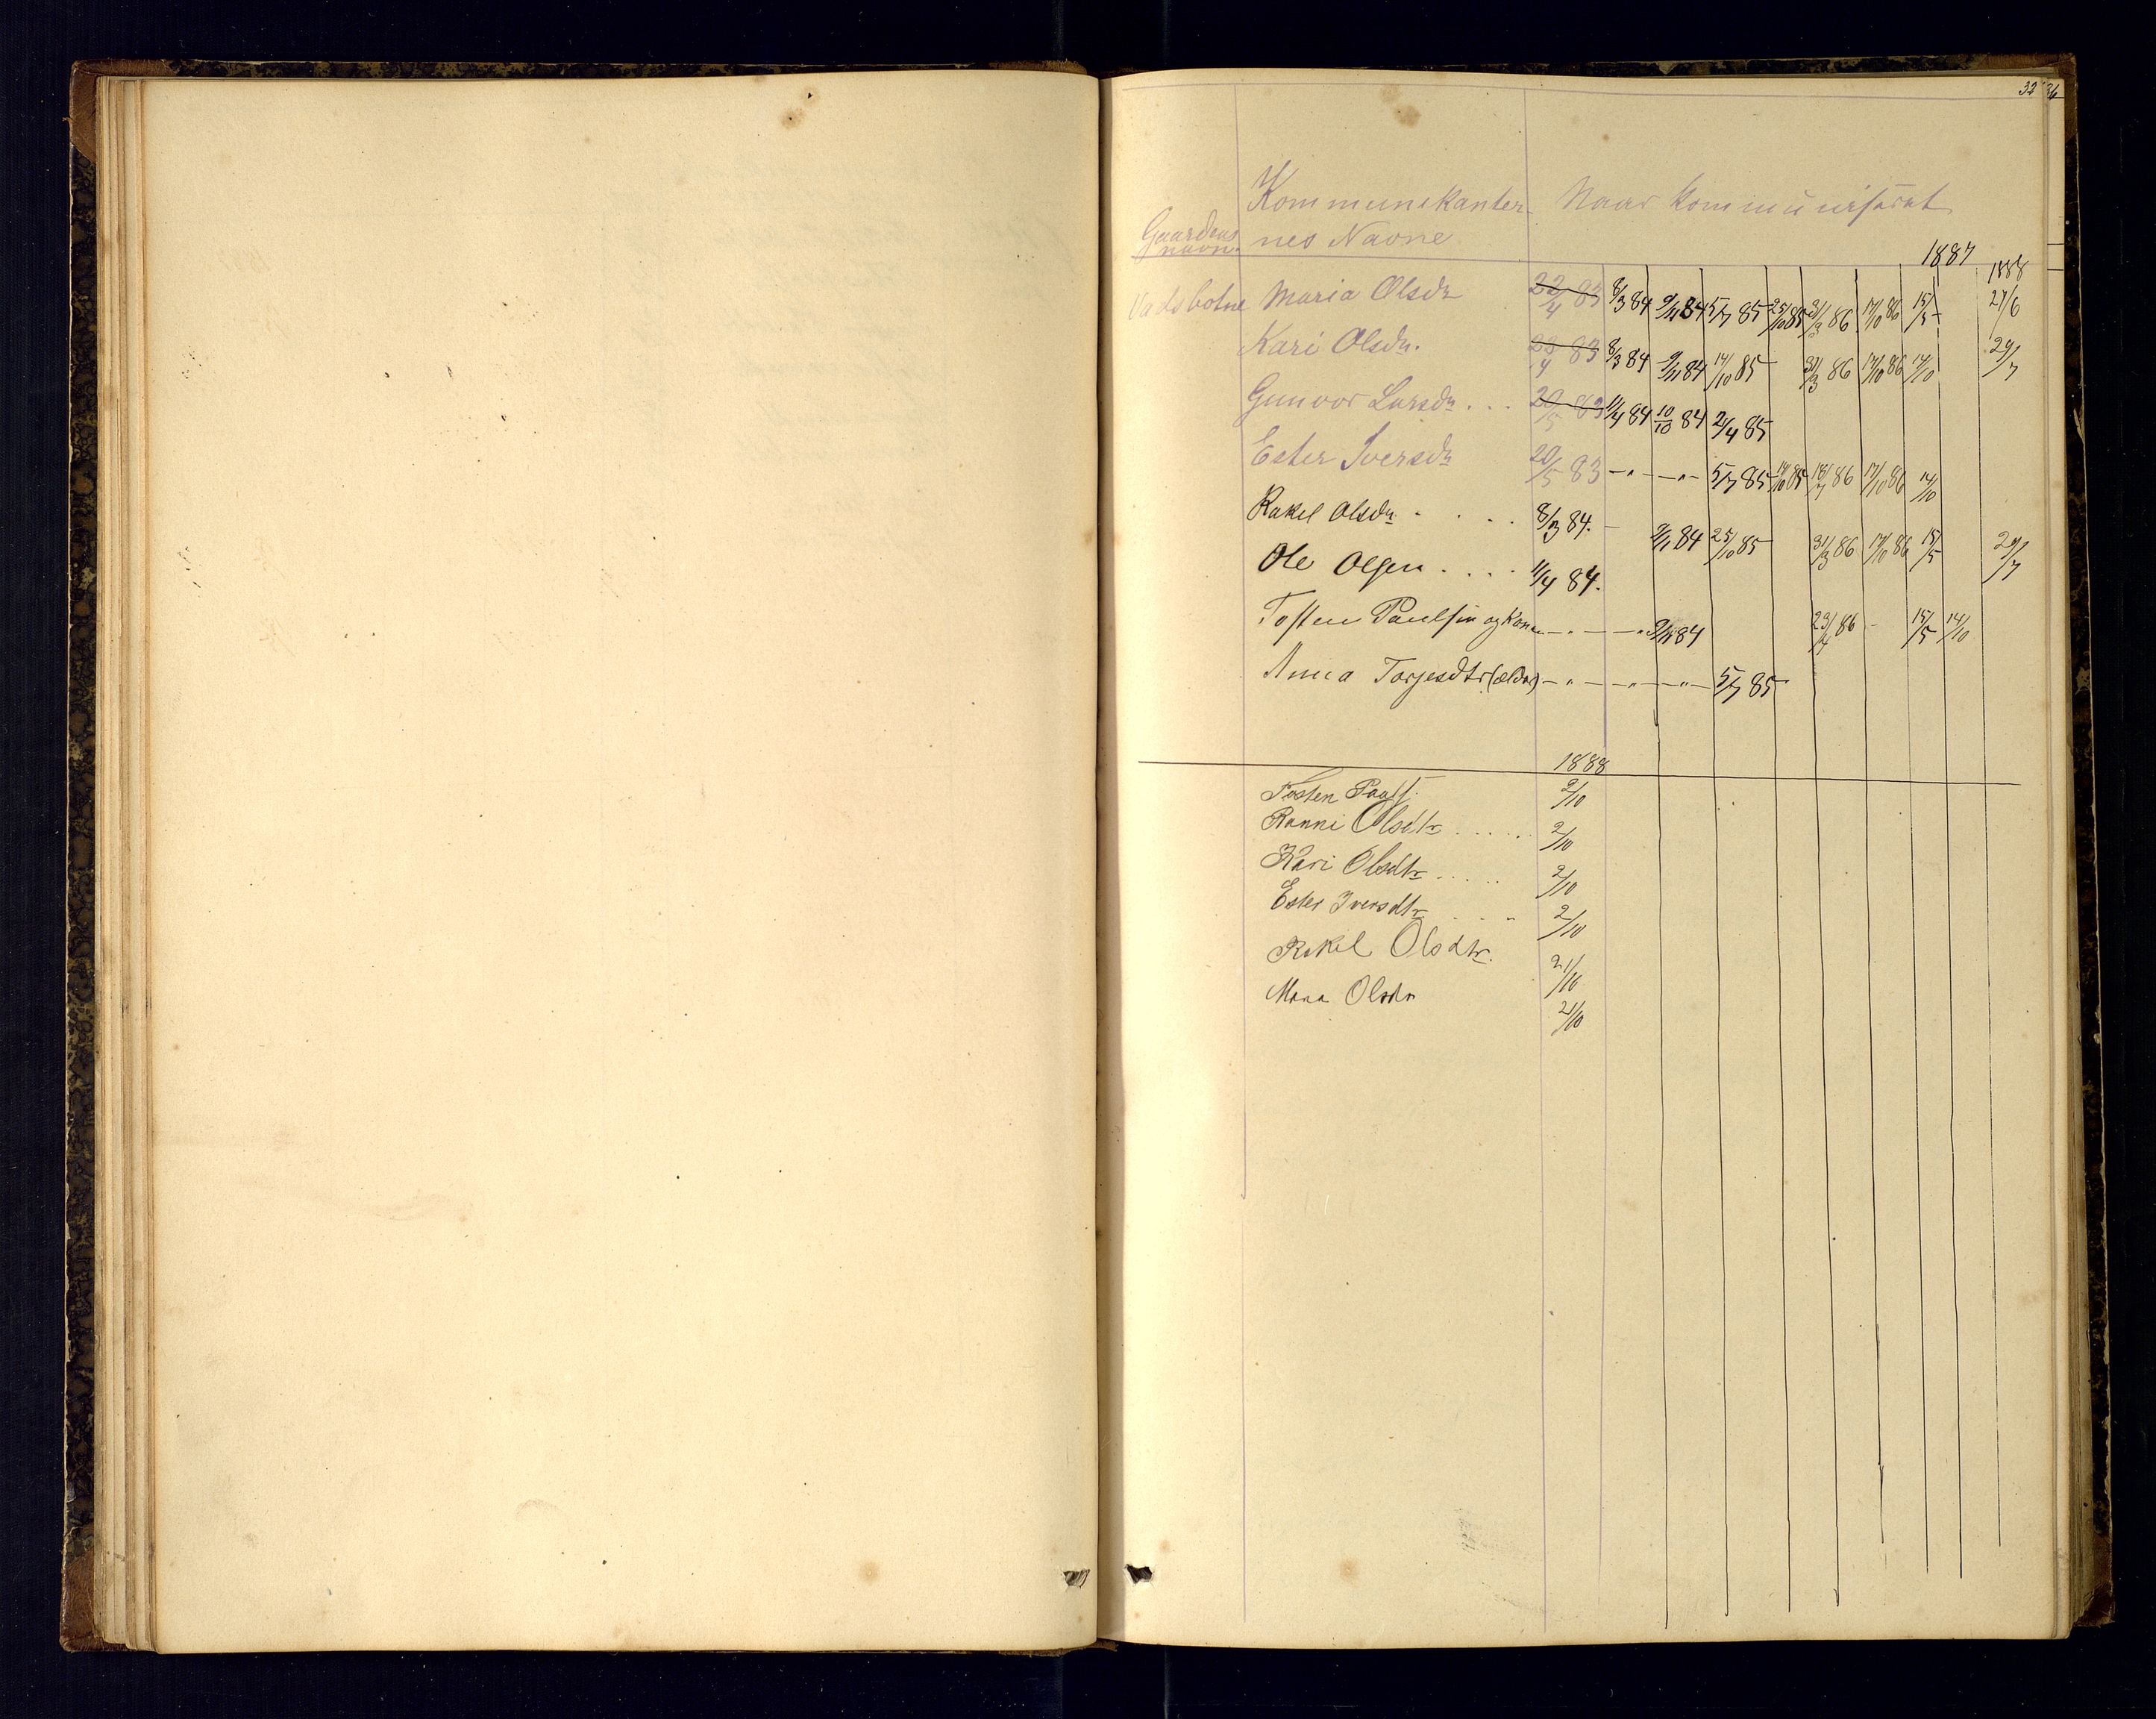 32
Kommunikanter- Naar kommuniseret
Gaardens navn. nes Navne
1887 1888
Vadsbotne Maria Olsdr 22/4 83 8/3 84 9/11 84 5/7 85 25/10 85 31/3 86 17/10 86 15/5 27/6
Kari Olsdr. 22/4 83 8/3 84 9/11 84 14/10 85 31/3 86 17/10 86 14/10 29/7
Gunvor Larsdr . . . 20/5 83 11/4 84 10/10 84 2/4 85
Ester Iversdr 20/5 83 -"- -"- 5/7 85 14/10 85 18/7 86 17/10 86 14/10
Rakel Olsdr . . . . 8/3 84. - 9/11 84 25/10 85 31/3 86 17/10 86 15/5 29/7
Ole Olsen . . . . 11/4 84.
Tosten Paulsen og Kone -"- -"- 9/11 84 23/4 86 - 15/5 14/10
Anna Torjesdtr (ældre) -"- -"- -"- 5/7 85
1888
Tosten Pauls. 2/10
Ranni Olsdtr . . . . . . 2/10
Kari Olsdtr . . . . . 2/10
Ester Iversdtr . . . . 2/10
Rakel Olsdtr. 21/10
Maria Olsdr 21/10